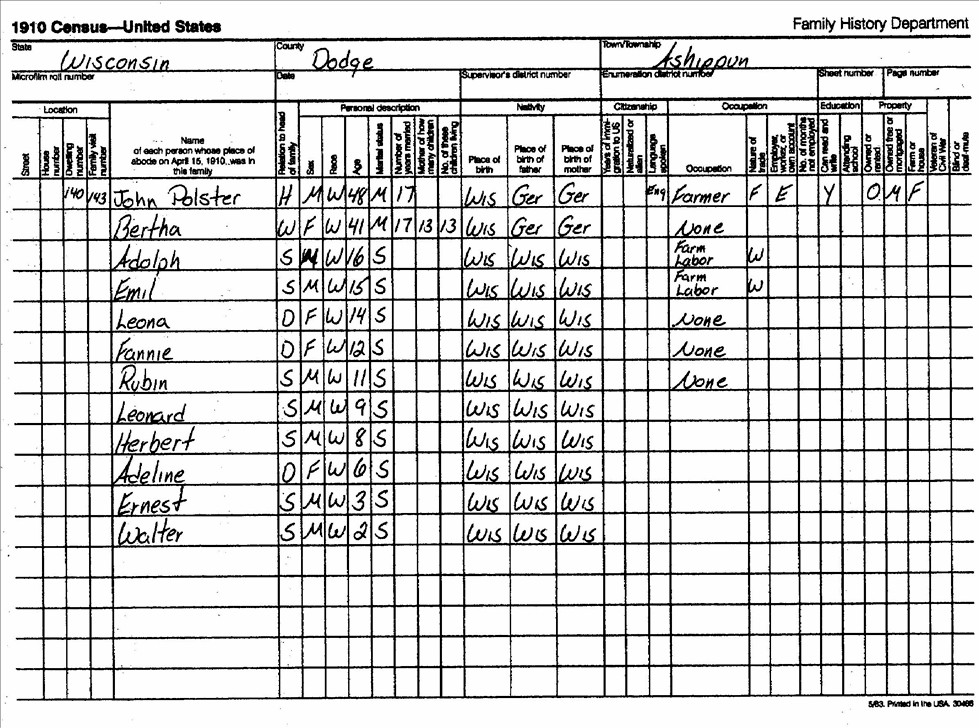 1910 Census—United States
Family History Department
State Wisconsin County Dodge Town/Township Ashippun
Microfilm roll number Date Supervisor's district number Enumeration district number Sheet number Page number
Location Personal description Nativity Citizenship Occupation Education Property
Street House number Dwelling number Family visit number Name of each person whose place of abode on April 15, 1910, was in this family Relation to head of family Sex Race Age Marital status Number of years married Mother of how many children No. of these children living Place of birth Place of birth of father Place of birth of mother Years of immigration to US Naturalized or alien Language spoken Occupation Nature of trade Employer, worker, or own account No. of months not employed Can read and write Attending school Owned or rented Owned free or mortgaged Farm or house Veteran of Civil War Blind or deaf-mute
140 143 John Polster H M W 48 M 17 Wis Ger Ger Eng Farmer F E Y O M F
Bertha W F W 41 M 17 13 13 Wis Ger Ger None
Adolph S M W 16 S Wis Wis Wis Farm Labor W
Emil S M W 15 S Wis Wis Wis Farm Labor W
Leona D F W 14 S Wis Wis Wis None
Fannie D F W 12 S Wis Wis Wis None
Rubin S M W 11 S Wis Wis Wis None
Leonard S M W 9 S Wis Wis Wis
Herbert S M W 8 S Wis Wis Wis
Adeline D F W 6 S Wis Wis Wis
Ernest S M W 3 S Wis Wis Wis
Walter S M W 2 S Wis Wis Wis
5/83. Printed in the USA. 30466